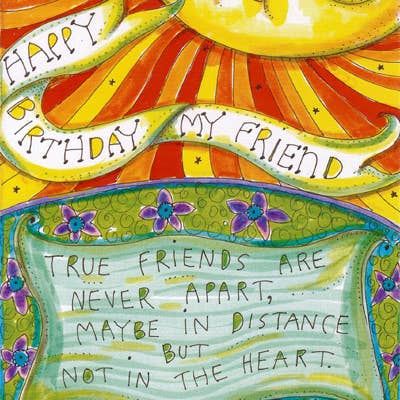 HAPPY
BIRTHDAY MY FRIEND
TRUE FRIENDS ARE
NEVER APART,
MAYBE IN DISTANCE
BUT
NOT IN THE HEART.